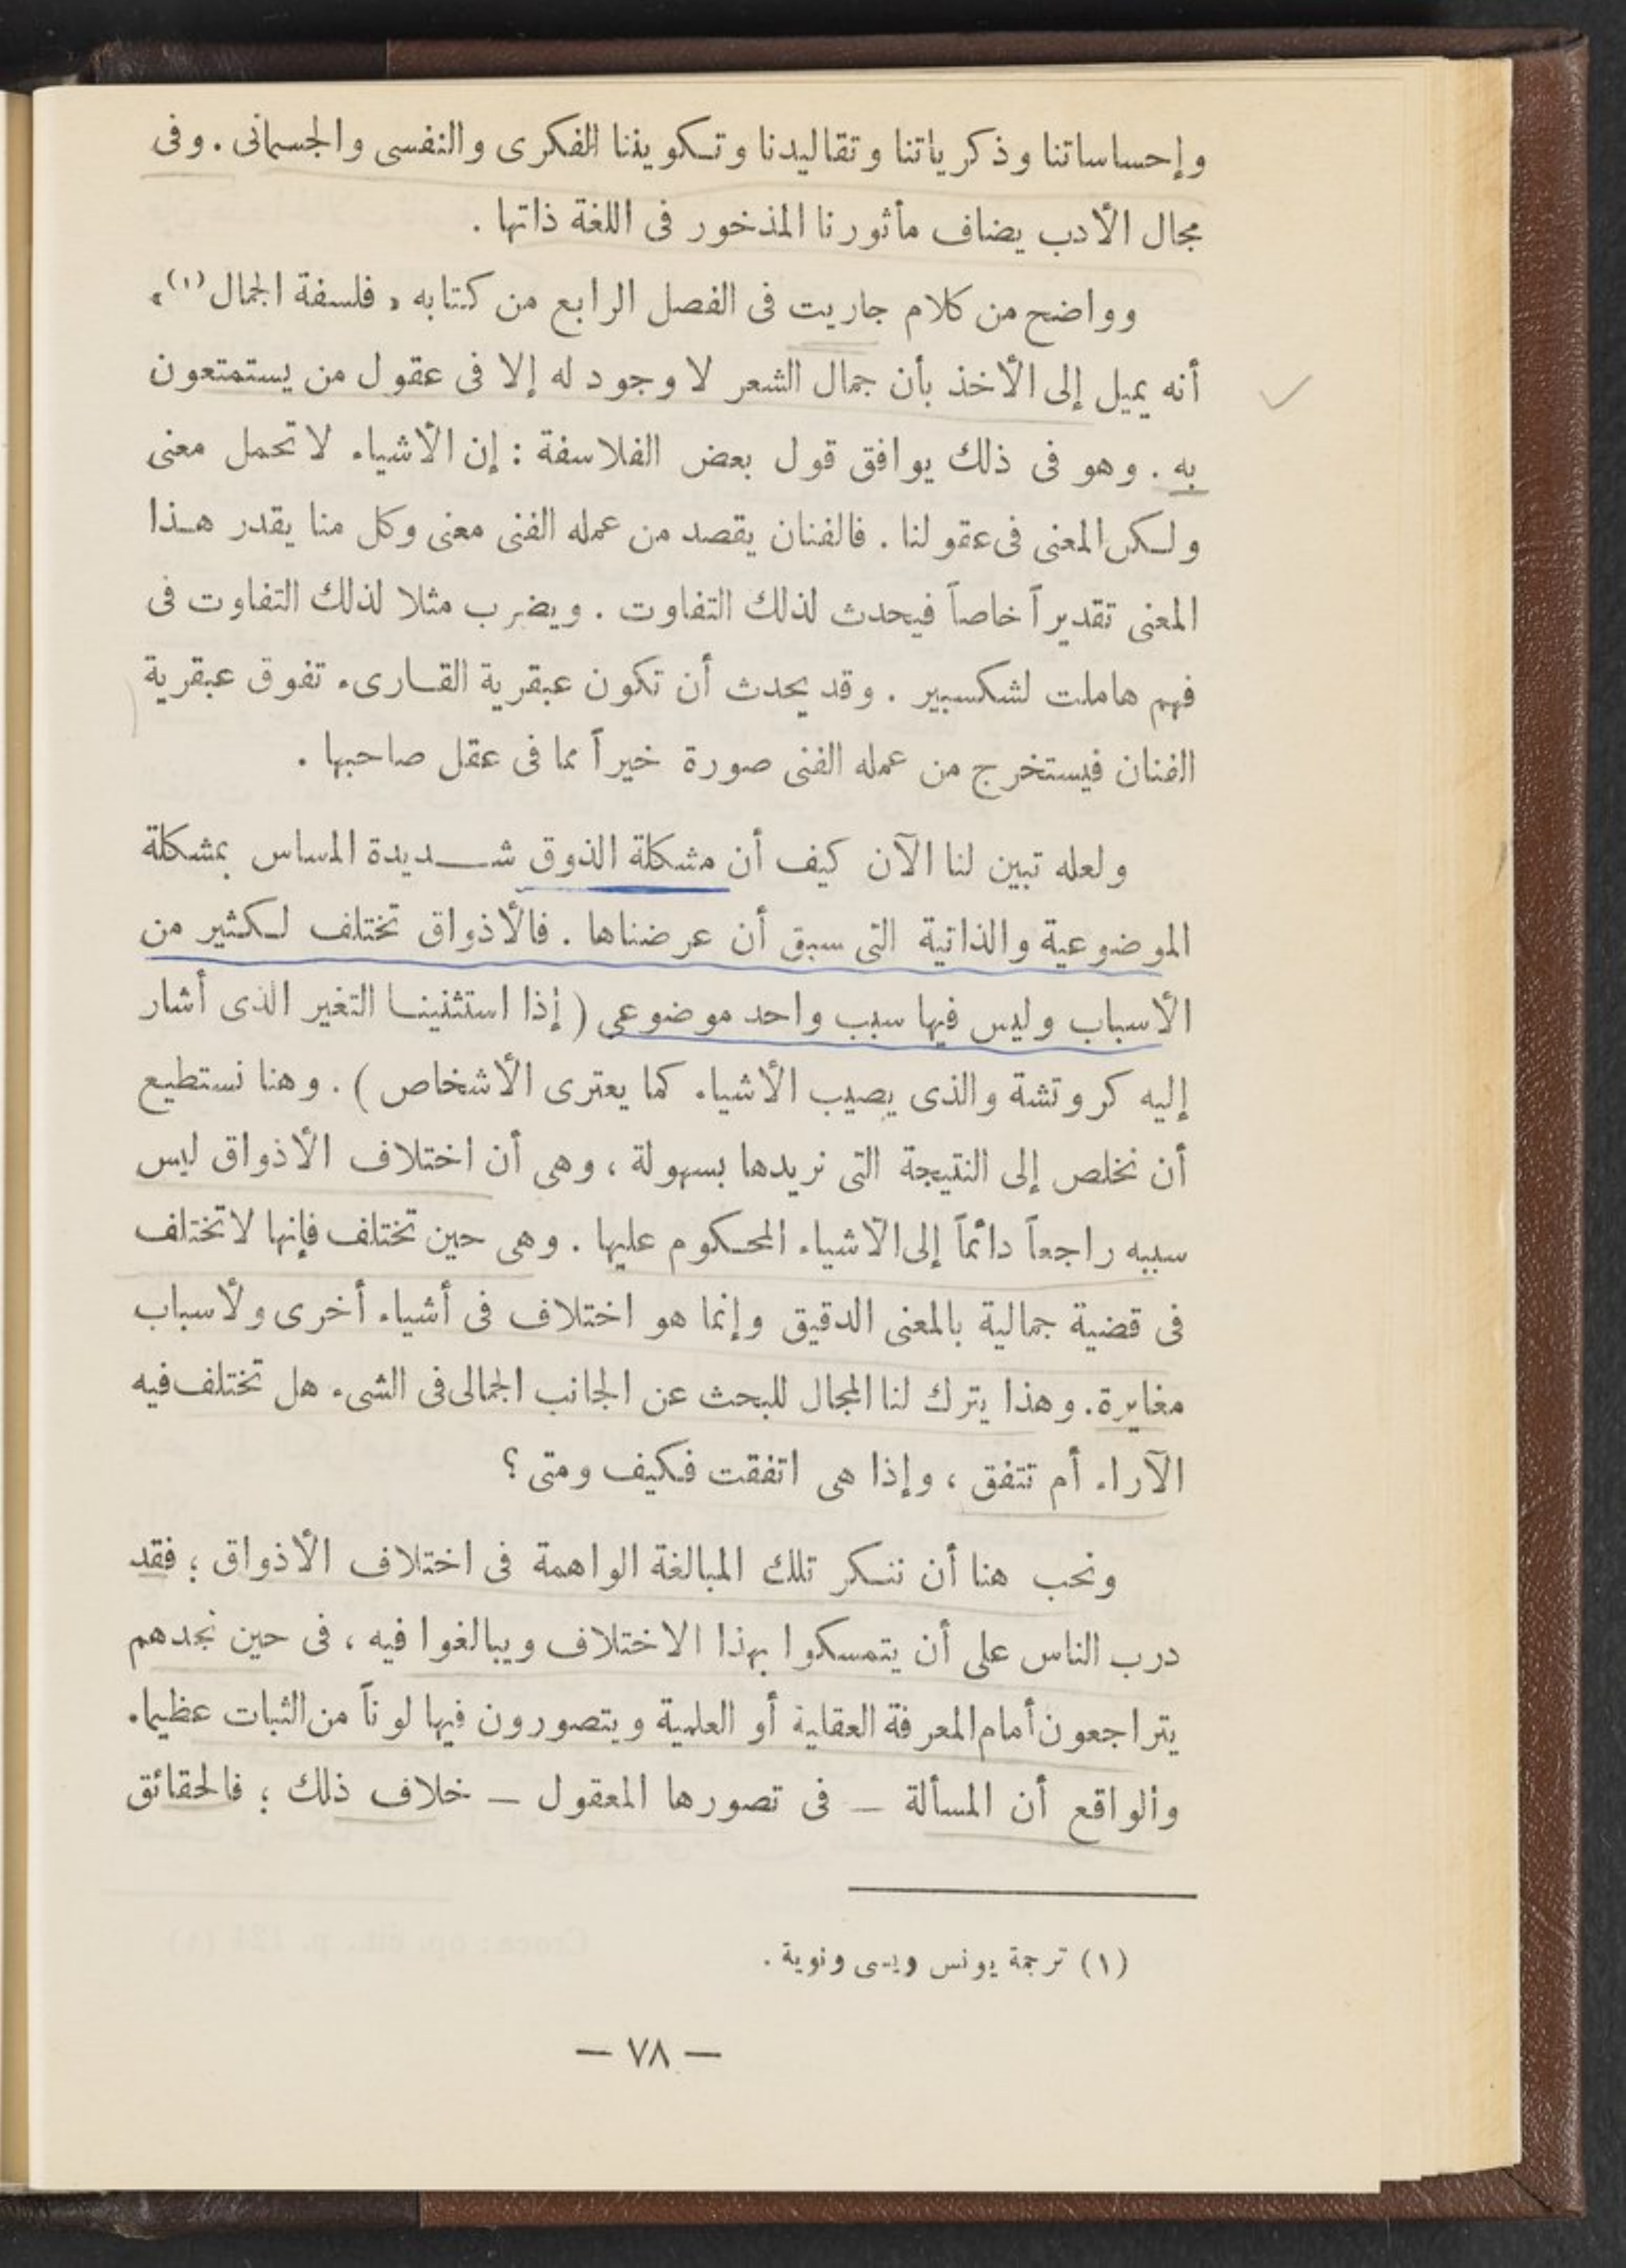 وإحساساتنا وذكرياتنا وتقاليدنا وتكويننا الفكرى والنفسى والجسمانى . وفى
مجال الأدب يضاف مأثورنا المذخور فى اللغة ذاتها .
وواضح من كلام جاريت فى الفصل الرابع من كتابه « فلسفة الجمال (١) »
أنه يميل إلى الأخذ بأن جمال الشعر لا وجود له إلا فى عقول من يستمتعون
به . وهو فى ذلك يوافق قول بعض الفلاسفة : إن الأشياء لا تحمل معنى
ولكن المعنى فى عقولنا . فالفنان يقصد من عمله الفنى معنى وكل منا يقدر هذا
المعنى تقديراً خاصاً فيحدث لذلك التفاوت . ويضرب مثلا لذلك التفاوت فى
فهم هاملت لشكسبير . وقد يحدث أن تكون عبقرية القارىء تفوق عبقرية
الفنان فيستخرج من عمله الفنى صورة خيراً مما فى عقل صاحبها .
ولعله تبين لنا الآن كيف أن مشكلة الذوق شديدة المساس بمشكلة
الموضوعية والذاتية التى سبق أن عرضناها . فالأذواق تختلف لكثير من
الأسباب وليس فيها سبب واحد موضوعى ( إذا استثنينا التغير الذى أشار
إليه كروتشة والذى يصيب الأشياء كما يعترى الأشخاص ) . وهنا نستطيع
أن نخلص إلى النتيجة التى نريدها بسهولة ، وهى أن اختلاف الأذواق ليس
سببه راجعاً دائماً إلى الأشياء المحكوم عليها . وهى حين تختلف فإنها لا تختلف
فى قضية جمالية بالمعنى الدقيق وإنما هو اختلاف فى أشياء أخرى ولأسباب
مغايرة . وهذا يترك لنا المجال للبحث عن الجانب الجمالى فى الشىء هل تختلف فيه
الآراء أم تتفق ، وإذا هى اتفقت فكيف ومتى ؟
ونحب هنا أن ننكر تلك المبالغة الواهمة فى اختلاف الأذواق ؛ فقد
درب الناس على أن يتمسكوا بهذا الاختلاف ويبالغوا فيه ، فى حين نجدهم
يتراجعون أمام المعرفة العقلية أو العلمية ويتصورون فيها لوناً من الثبات عظيما .
والواقع أن المسألة — فى تصورها المعقول — خلاف ذلك ؛ فالحقائق
(١) ترجمة يونس ويسى ونوية .
— ٧٨ —